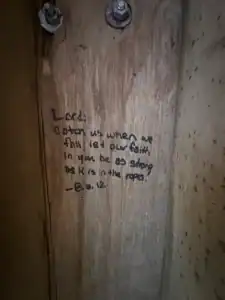 Lord,
Catch us when we
fall let our faith
in you be as strong
as it is in the ropes.